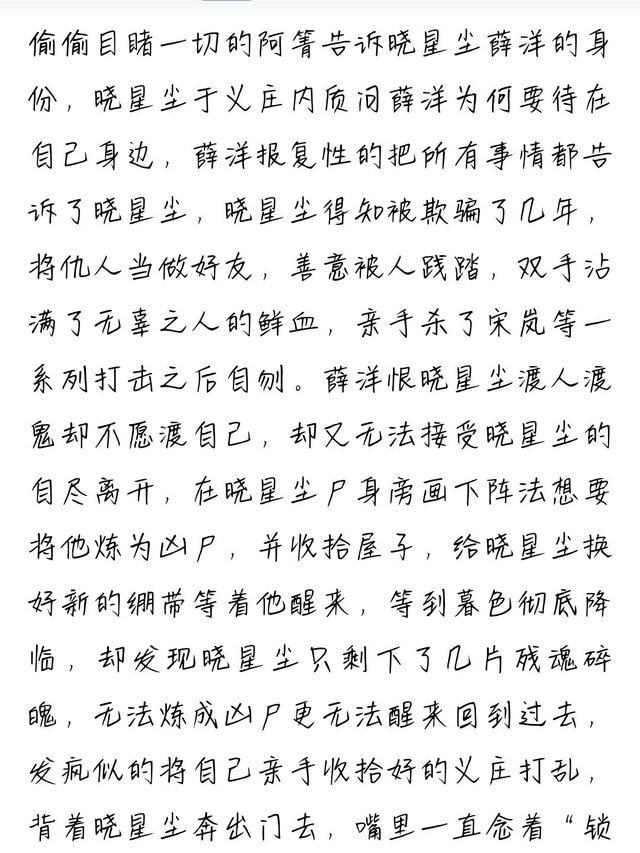 偷偷目睹一切的阿箐告诉晓星尘薛洋的身
份，晓星尘于义庄内质问薛洋为何要待在
自己身边，薛洋报复性的把所有事情都告
诉了晓星尘，晓星尘得知被欺骗了几年，
将仇人当做好友，善意被人践踏，双手沾
满了无辜之人的鲜血，亲手杀了宋岚等一
系列打击之后自刎。薛洋恨晓星尘渡人渡
鬼却不愿渡自己，却又无法接受晓星尘的
自尽离开，在晓星尘尸身旁画下阵法想要
将他炼为凶尸，并收拾屋子，给晓星尘换
好新的绷带等着他醒来，等到暮色彻底降
临，却发现晓星尘只剩下了几片残魂碎
魄，无法炼成凶尸更无法醒来回到过去，
发疯似的将自己亲手收拾好的义庄打乱，
背着晓星尘奔出门去，嘴里一直念着“锁